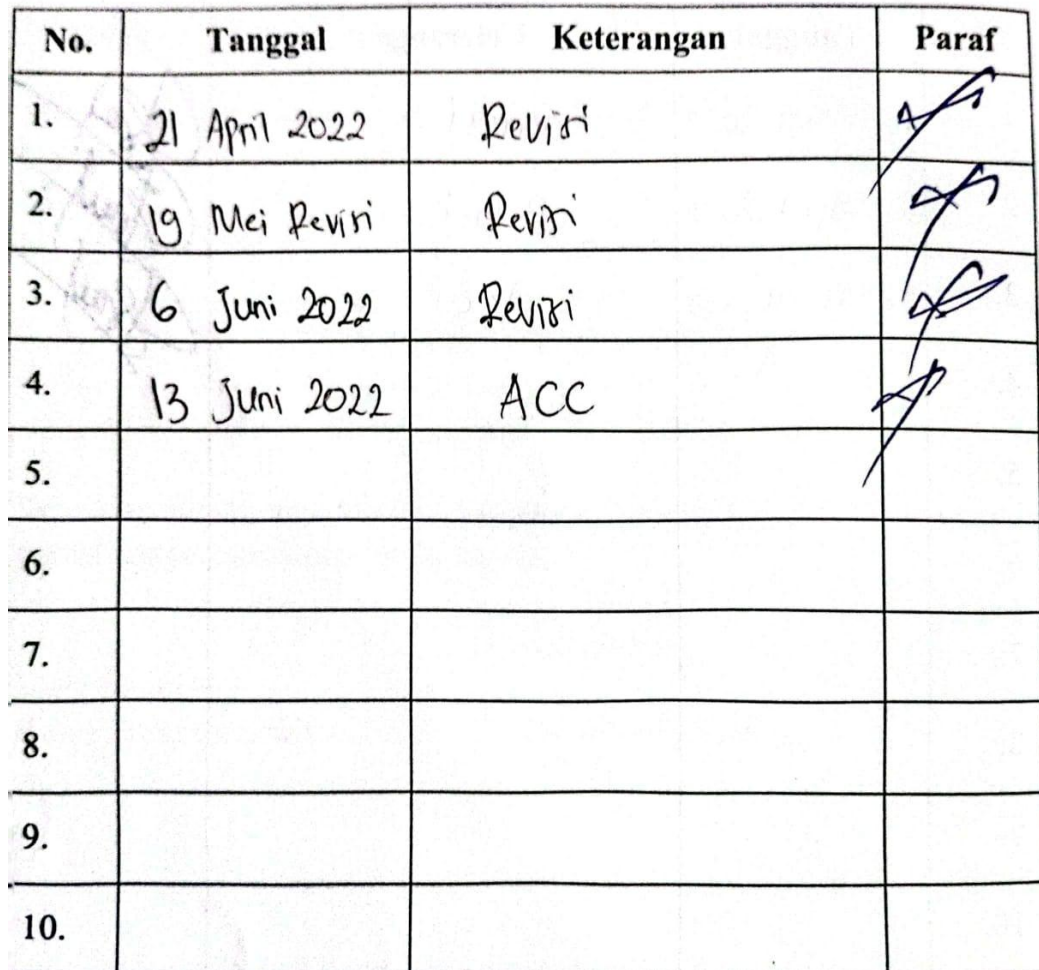 No. Tanggal Keterangan Paraf
1. 21 April 2022 Revisi
2. 19 Mei Revisi Revisi
3. 6 Juni 2022 Revisi
4. 13 Juni 2022 ACC
5.
6.
7.
8.
9.
10.